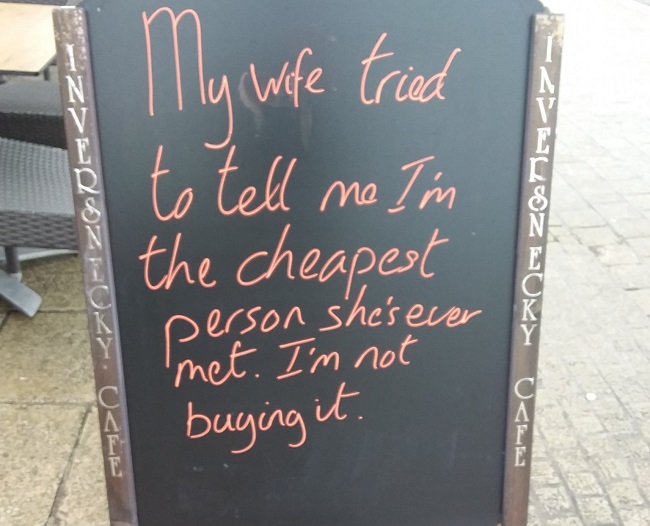 INVERSNECKY CAFE
My wife tried
to tell me I'm
the cheapest
person she's ever
met. I'm not
buying it.
INVERSNECKY CAFE